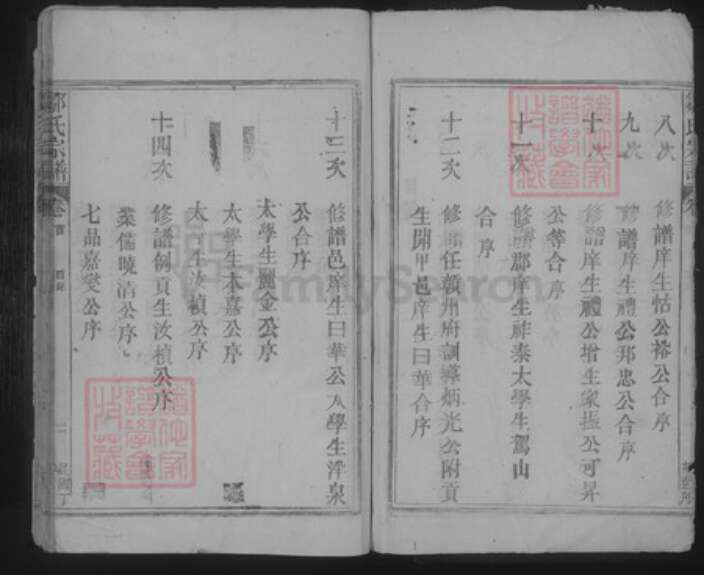 八次 修譜庠生怙公裕公合序
九次 修譜庠生禮公邦忠公合序
十次 修譜庠生禮公增生家振公可昇
公等合序
十一次 修譜郡庠生祚泰太學生駕山
合序
十二次 修譜任贛州府訓導炳光公附貢
生開甲邑庠生曰華合序
十三次 修譜邑庠生曰華公太學生洋泉
公合序
太學生麗金公序
太學生本嘉公序
太學生汝楨公序
十四次 修譜例貢生汝楨公序
業儒曉清公序
七品嘉爕公序
氏宗譜 卷首 目錄 二
FamilySearch
譜學會
收藏
譜學會
收藏